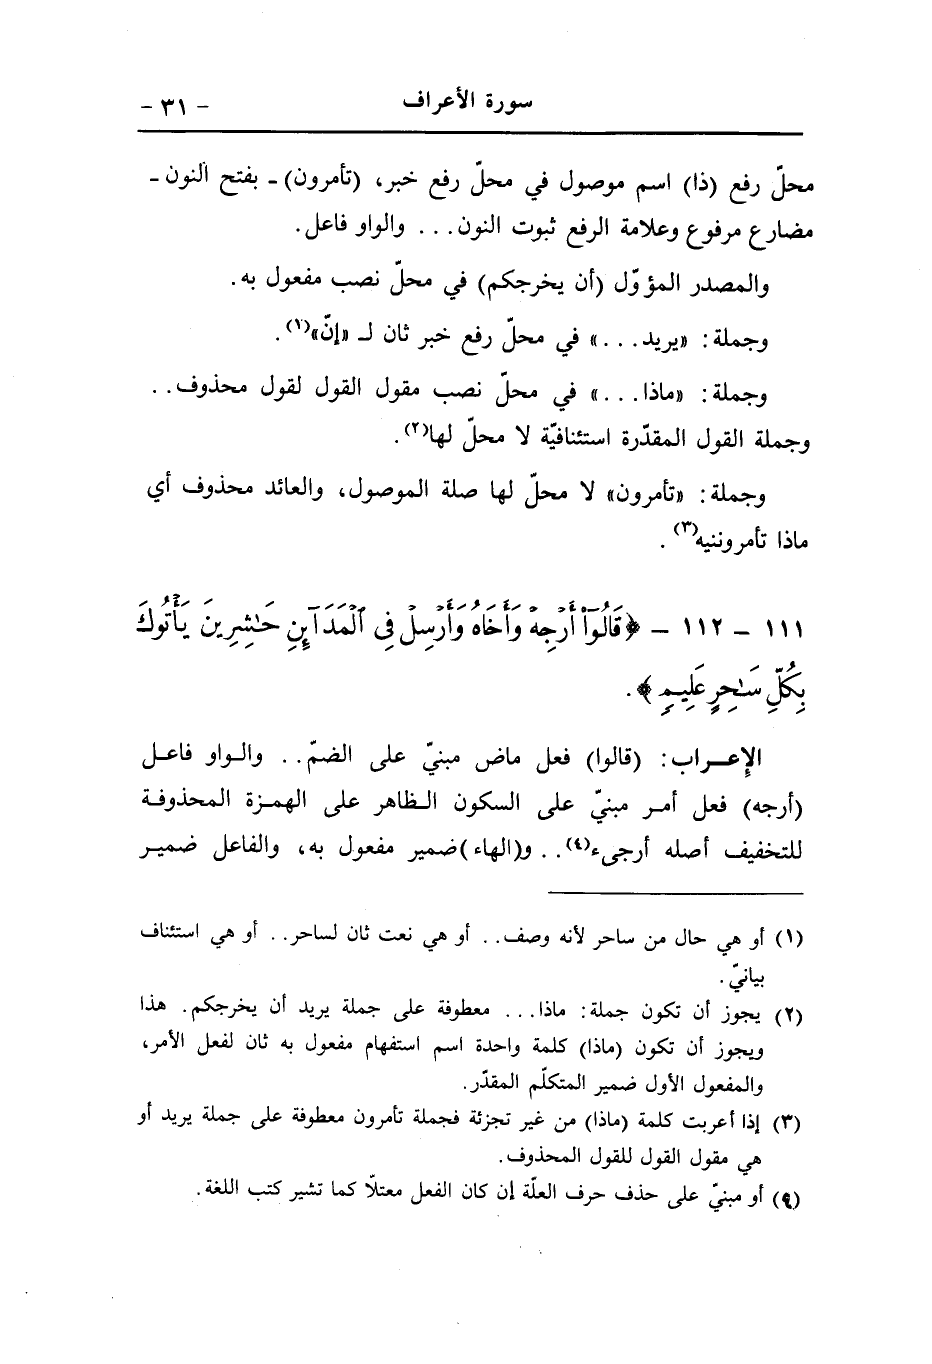 سورة الأعراف - ٣١ -
محلّ رفع (ذا) اسم موصول في محلّ رفع خبر، (تأمرون) - بفتح النون -
مضارع مرفوع وعلامة الرفع ثبوت النون... والواو فاعل.
والمصدر المؤوّل (أن يخرجكم) في محلّ نصب مفعول به.
وجملة: «يريد...» في محلّ رفع خبر ثان لـ «إنّ»(١).
وجملة: «ماذا...» في محلّ نصب مقول القول لقول محذوف..
وجملة القول المقدّرة استئنافيّة لا محلّ لها(٢).
وجملة: «تأمرون» لا محلّ لها صلة الموصول، والعائد محذوف أي
ماذا تأمروننيه(٣).
١١١ - ١١٢ - ﴿قَالُوٓا۟ أَرْجِهْ وَأَخَاهُ وَأَرْسِلْ فِي ٱلْمَدَآئِنِ حَـٰشِرِينَ يَأْتُوكَ
بِكُلِّ سَـٰحِرٍ عَلِيمٍ﴾.
الإعراب: (قالوا) فعل ماض مبنيّ على الضمّ.. والواو فاعل
(أرجه) فعل أمر مبنيّ على السكون الظاهر على الهمزة المحذوفة
للتخفيف أصله أرجىء(٤).. و(الهاء) ضمير مفعول به، والفاعل ضمير
(١) أو هي حال من ساحر لأنه وصف.. أو هي نعت ثان لساحر.. أو هي استئناف
بيانيّ.
(٢) يجوز أن تكون جملة: ماذا... معطوفة على جملة يريد أن يخرجكم. هذا
ويجوز أن تكون (ماذا) كلمة واحدة اسم استفهام مفعول به ثان لفعل الأمر،
والمفعول الأول ضمير المتكلّم المقدّر.
(٣) إذا أعربت كلمة (ماذا) من غير تجزئة فجملة تأمرون معطوفة على جملة يريد أو
هي مقول القول للقول المحذوف.
(٤) أو مبنيّ على حذف حرف العلّة إن كان الفعل معتلّا كما تشير كتب اللغة.